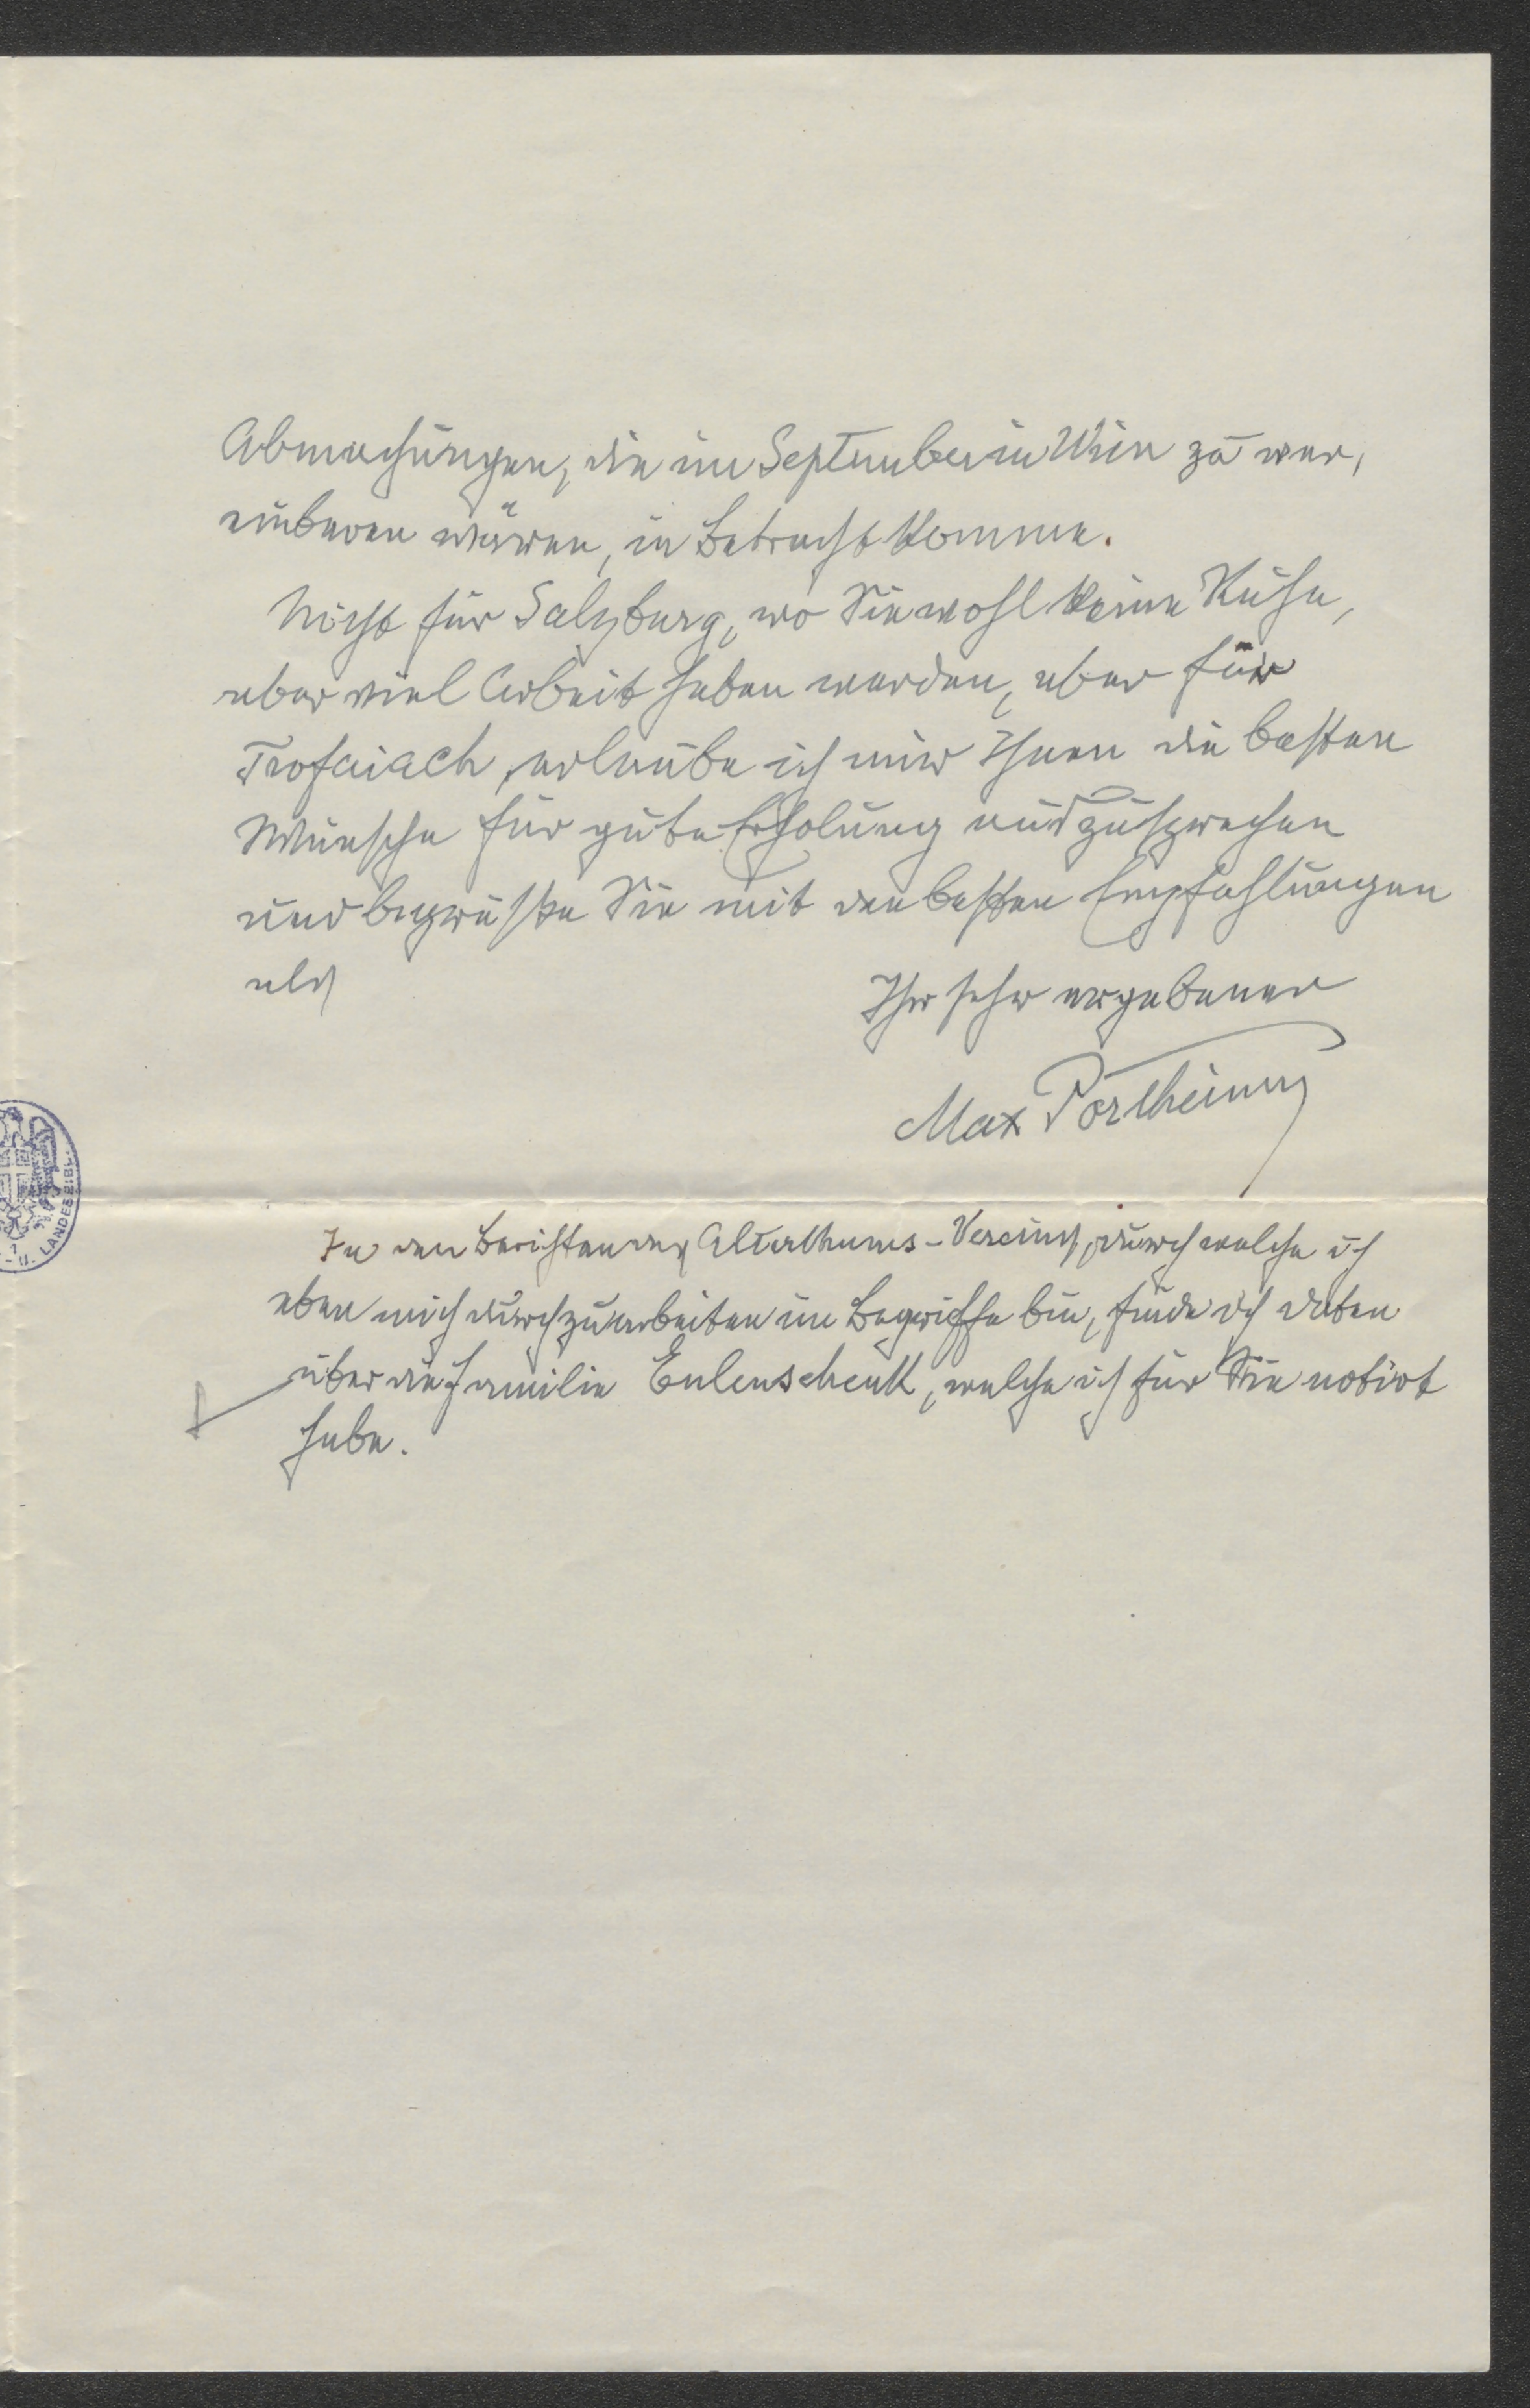 Abmachungen, die im September in Wien zu ver,
einbaren wären, in Betracht komme.
Nicht für Salzburg, wo Sie wohl keine Ruhe,
aber viel Arbeit haben werden, aber für
Trofaiach, erlaube ich mir Ihnen die besten
Wünsche für gute Erholung auszusprechen
und begrüße Sie mit den besten Empfehlungen
als
Ihr sehr ergebener
Max Portheim
LANDESBIBL.
In den Berichten des Alterthums-Vereins, durch welche ich
eben mich durchzuarbeiten im Begriffe bin, finde ich Daten
über die Familie Eulenschenk, welche ich für Sie notirt
habe.